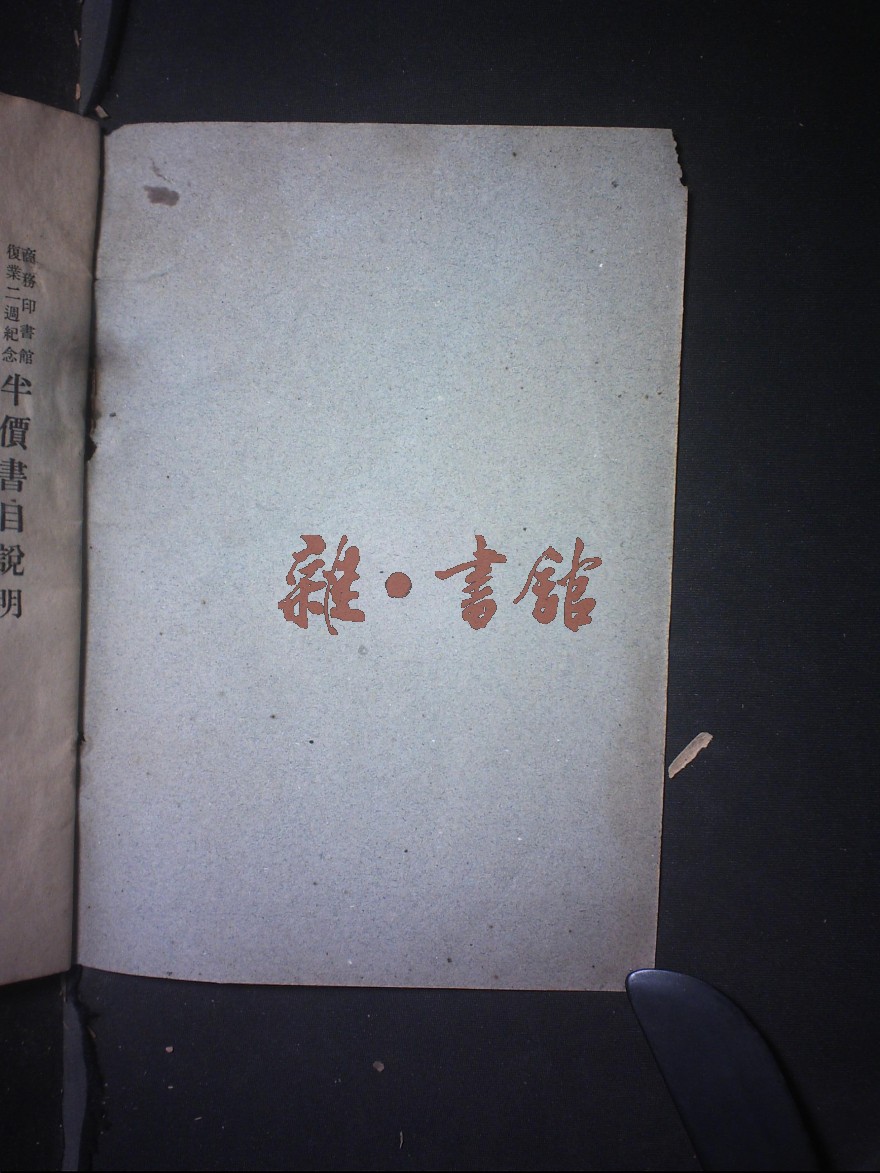 商務印書館
復業二週紀念
半價書目說明
雜·書館